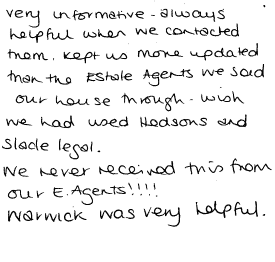 very informative - always
helpful when we contacted
them. Kept us more updated
than the Estate Agents we sold
our house through - wish
we had used Hodsons and
Slade legal.
We never received this from
our E. Agents!!!!
Warwick was very helpful.